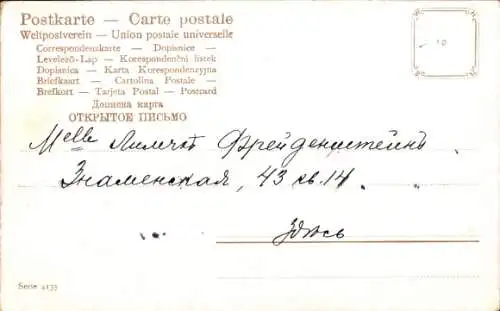 Postkarte — Carte postale
Weltpostverein — Union postale universelle
Correspondenzkarte — Dopisnice —
Levelező-Lap — Korespondenční lístek
Dopisnica — Karta Korespondencyjna
Briefkaart — Cartolina Postale —
Brefkort — Tarjeta Postal — Postcard
Дописна карта
ОТКРЫТОЕ ПИСЬМО
10
Melle Фрейденштейнъ
Знаменская, 43 кв. 14.
Здѣсь
Serie 4135